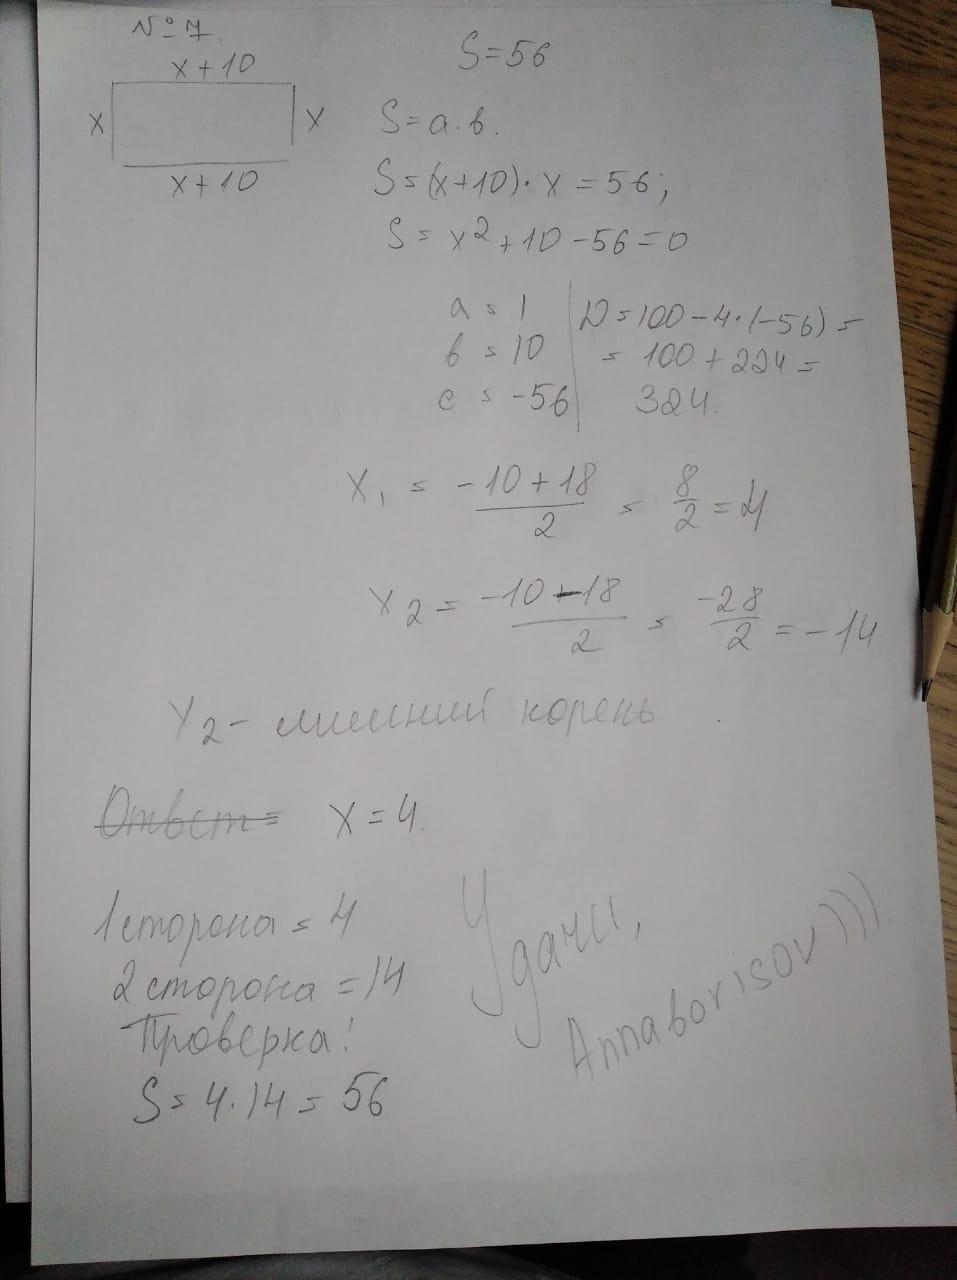 № 7.
x+10
x
x
x+10
S=56
S=a·b.
S=(x+10)·x=56;
S=x2+10-56=0
a=1
b=10
c=-56
D=100-4·(-56)=
=100+224=
324.
x1 = -10+18/2 = 8/2 = 4
x2 = -10-18/2 = -28/2 = -14
x2- лишний корень
Ответ= x=4.
1 сторона=4
2 сторона=14
Проверка!
S=4·14=56
Удачи,
Annaborisov))).